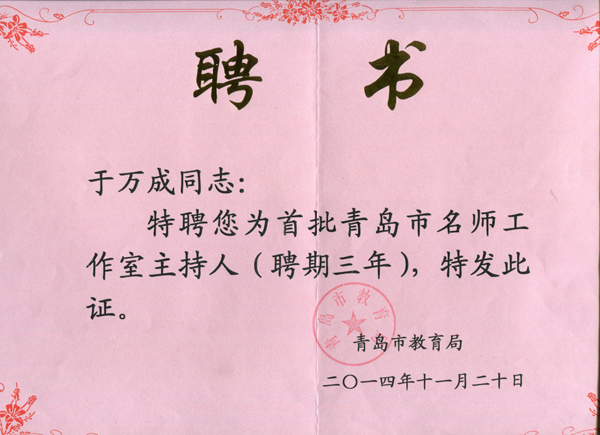 聘 书
于万成同志：
特聘您为首批青岛市名师工
作室主持人（聘期三年），特发此
证。
青岛市教育
青岛市教育局
二〇一四年十一月二十日